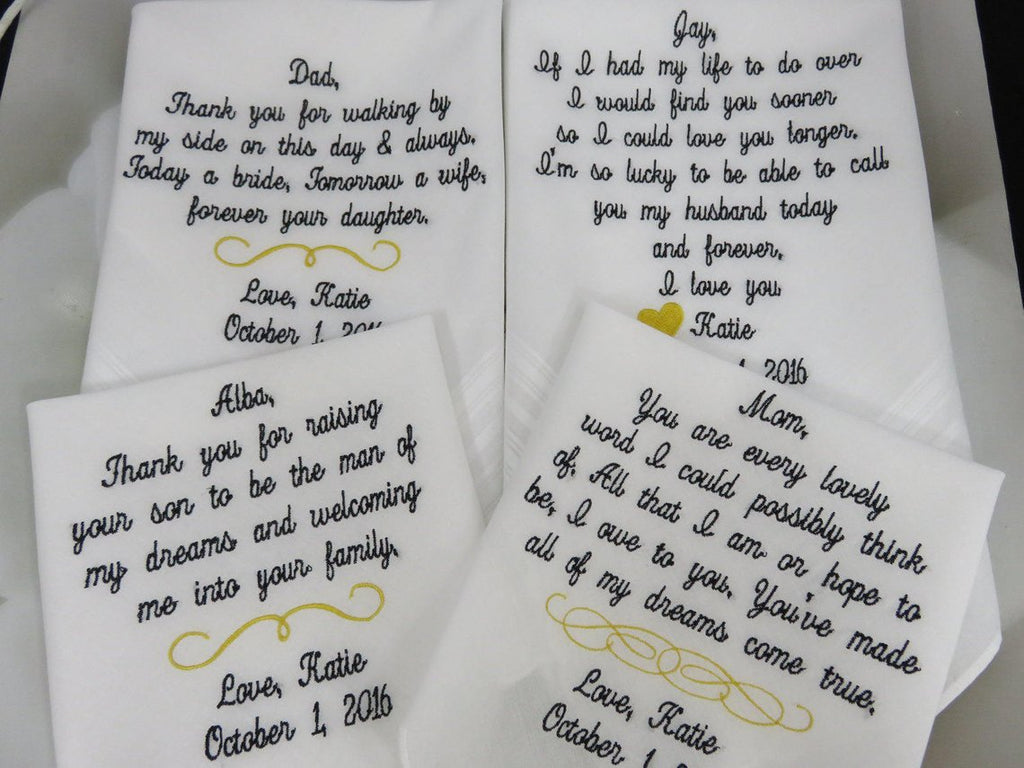 Dad,
Thank you for walking by
my side on this day & always.
Today a bride, Tomorrow a wife,
forever your daughter.
Love, Katie
October 1, 2016
Jay,
If I had my life to do over
I would find you sooner
so I could love you longer.
I'm so lucky to be able to call
you my husband today
and forever.
I love you
Katie
1, 2016
Alba,
Thank you for raising
your son to be the man of
my dreams and welcoming
me into your family.
Love, Katie
October 1, 2016
Mom,
You are every lovely
word I could possibly think
of. All that I am or hope to
be, I owe to you. You've made
all of my dreams come true.
Love, Katie
October 1,